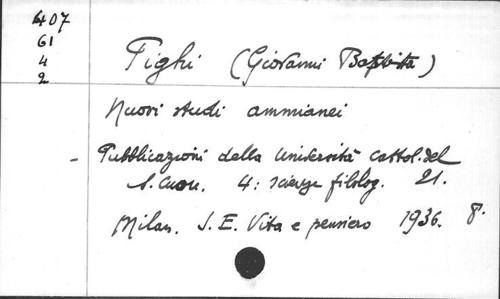 407
61
4
2
Pighi (Giovanni Battista)
Nuovi studi ammianei
- Pubblicazioni della Università cattol. del
S. Cuore. 4: scienze filolog. 21.
Milan. S. E. Vita e pensiero 1936. 8.